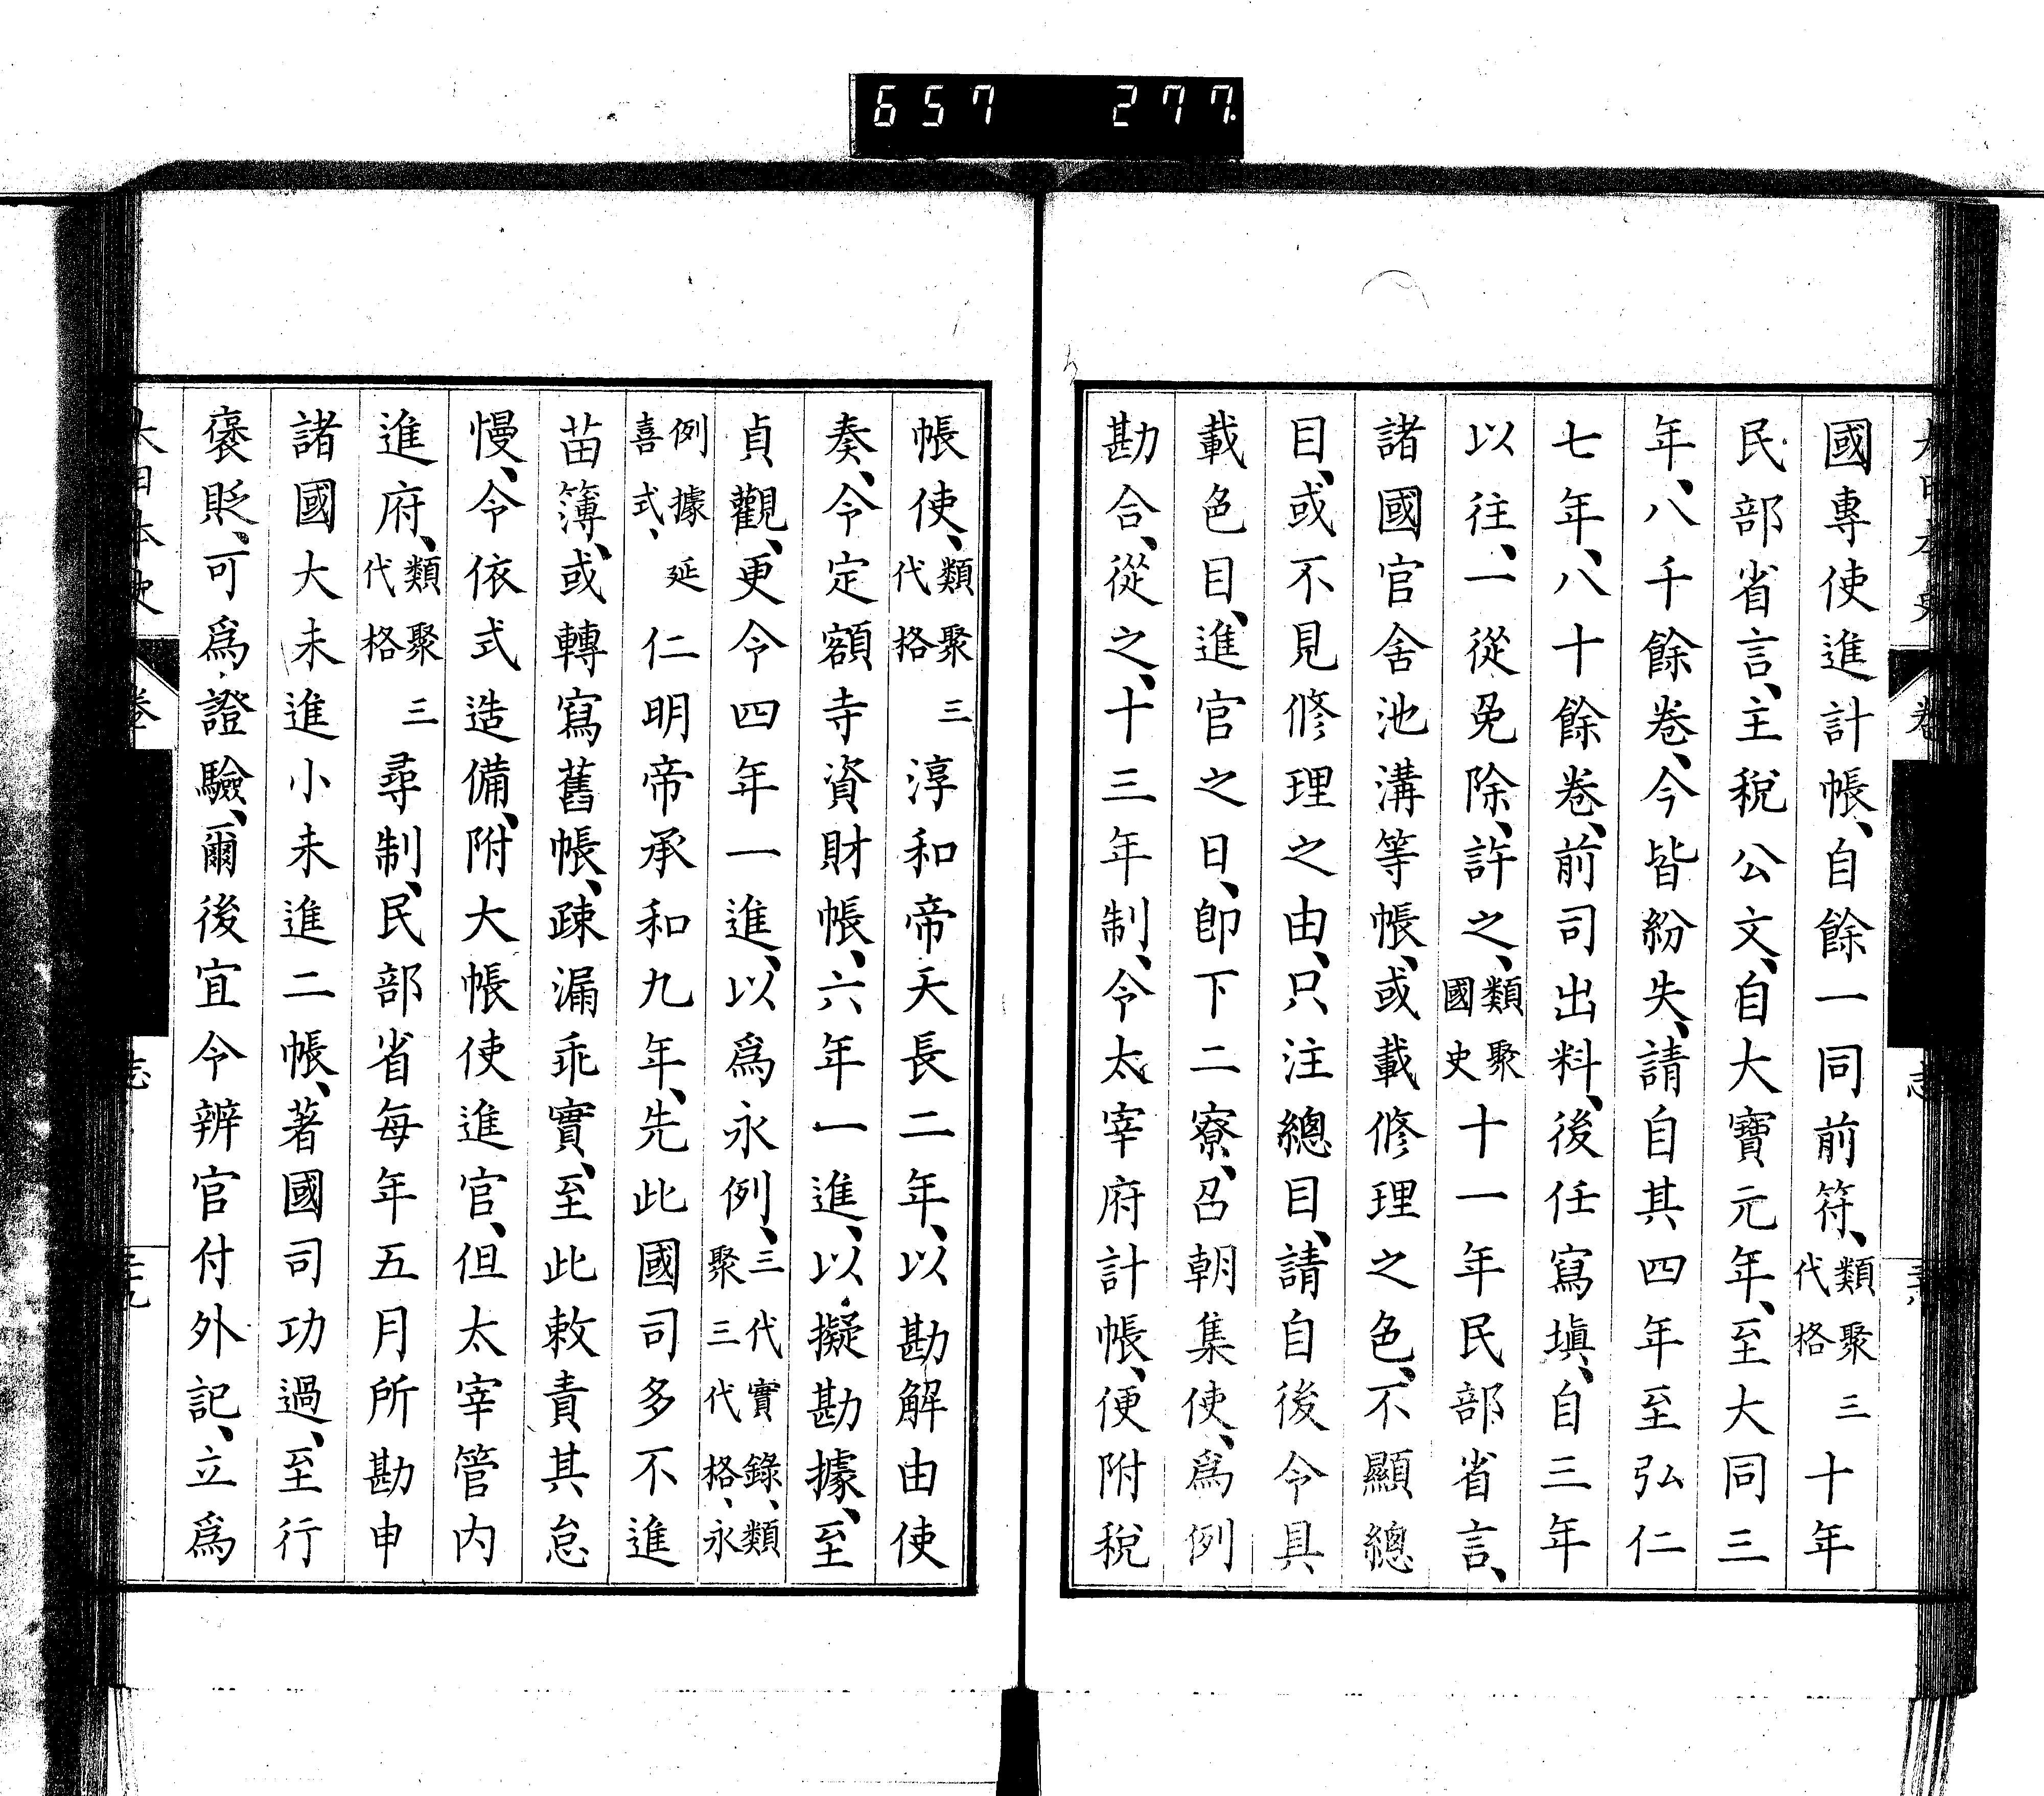 657 277
國專使進計帳、自餘一同前符、類聚三代格十年
民部省言、主稅公文、自大寶元年、至大同三
年、八千餘卷、今皆紛失、請自其四年至弘仁
七年、八十餘卷、前司出料、後任寫塡、自三年
以往、一從免除、許之、類聚國史十一年民部省言、
諸國官舍池溝等帳、或載修理之色、不顯總
目、或不見修理之由、只注總目、請自後令具
載色目、進官之日、卽下二寮、召朝集使、爲例
勘合、從之、十三年制、令太宰府計帳、便附稅
帳使、類聚三代格淳和帝天長二年、以勘解由使
奏、令定額寺資財帳、六年一進、以擬勘據、至
貞觀、更令四年一進、以爲永例、三代實錄、類聚三代格、永
例據延喜式、仁明帝承和九年、先此國司多不進
苗簿、或轉寫舊帳、疎漏乖實、至此敕責其怠
慢、令依式造備、附大帳使進官、但太宰管內
進府、類聚三代格尋制、民部省每年五月所勘申
諸國大未進小未進二帳、著國司功過、至行
褒貶、可爲證驗、爾後宜令辨官付外記、立爲